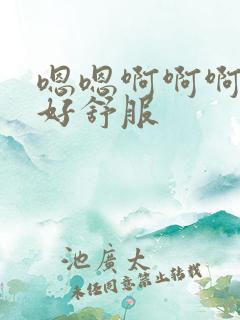 嗯嗯啊啊啊
好舒服
池廣太
未任同意禁止转载